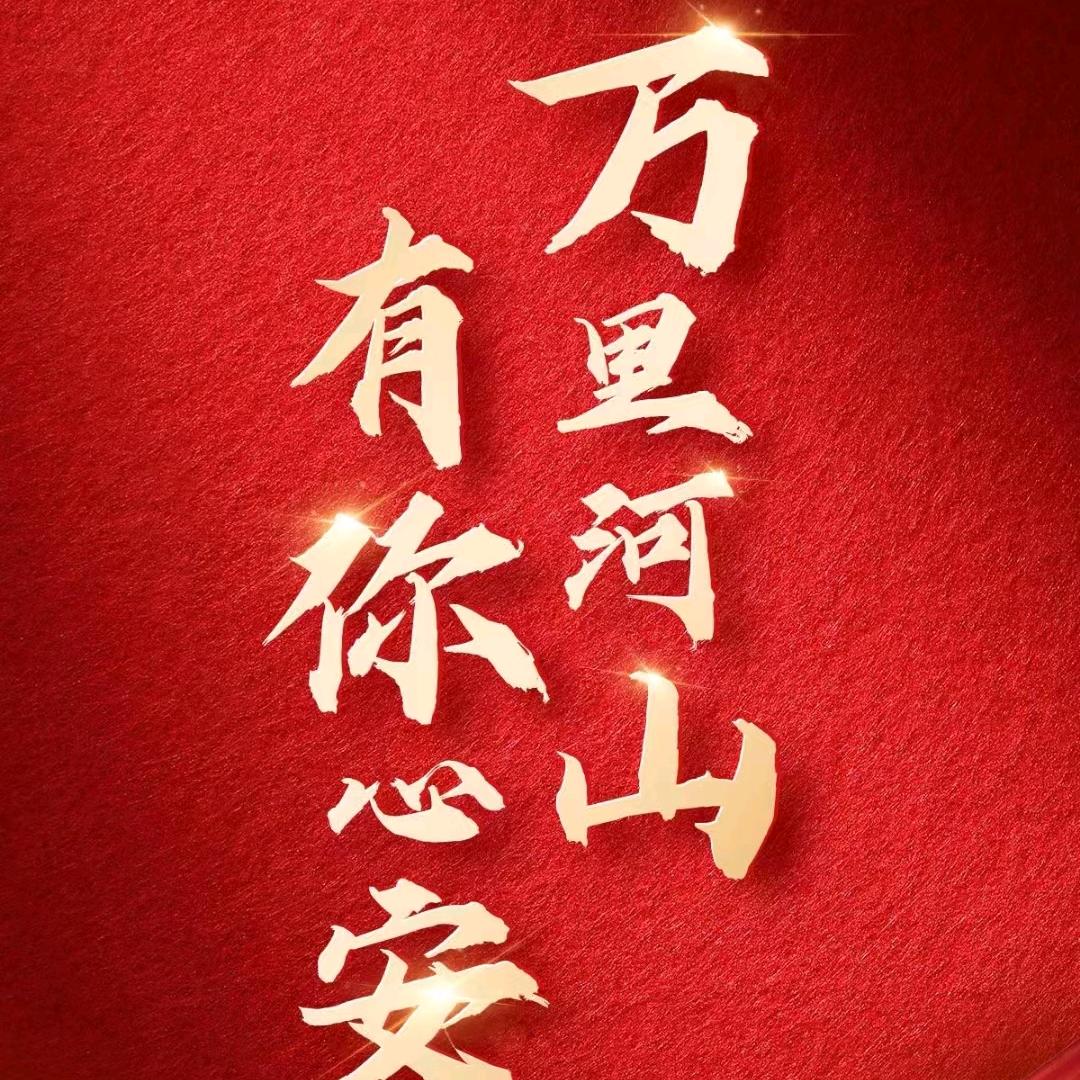 万里河山
有你心安